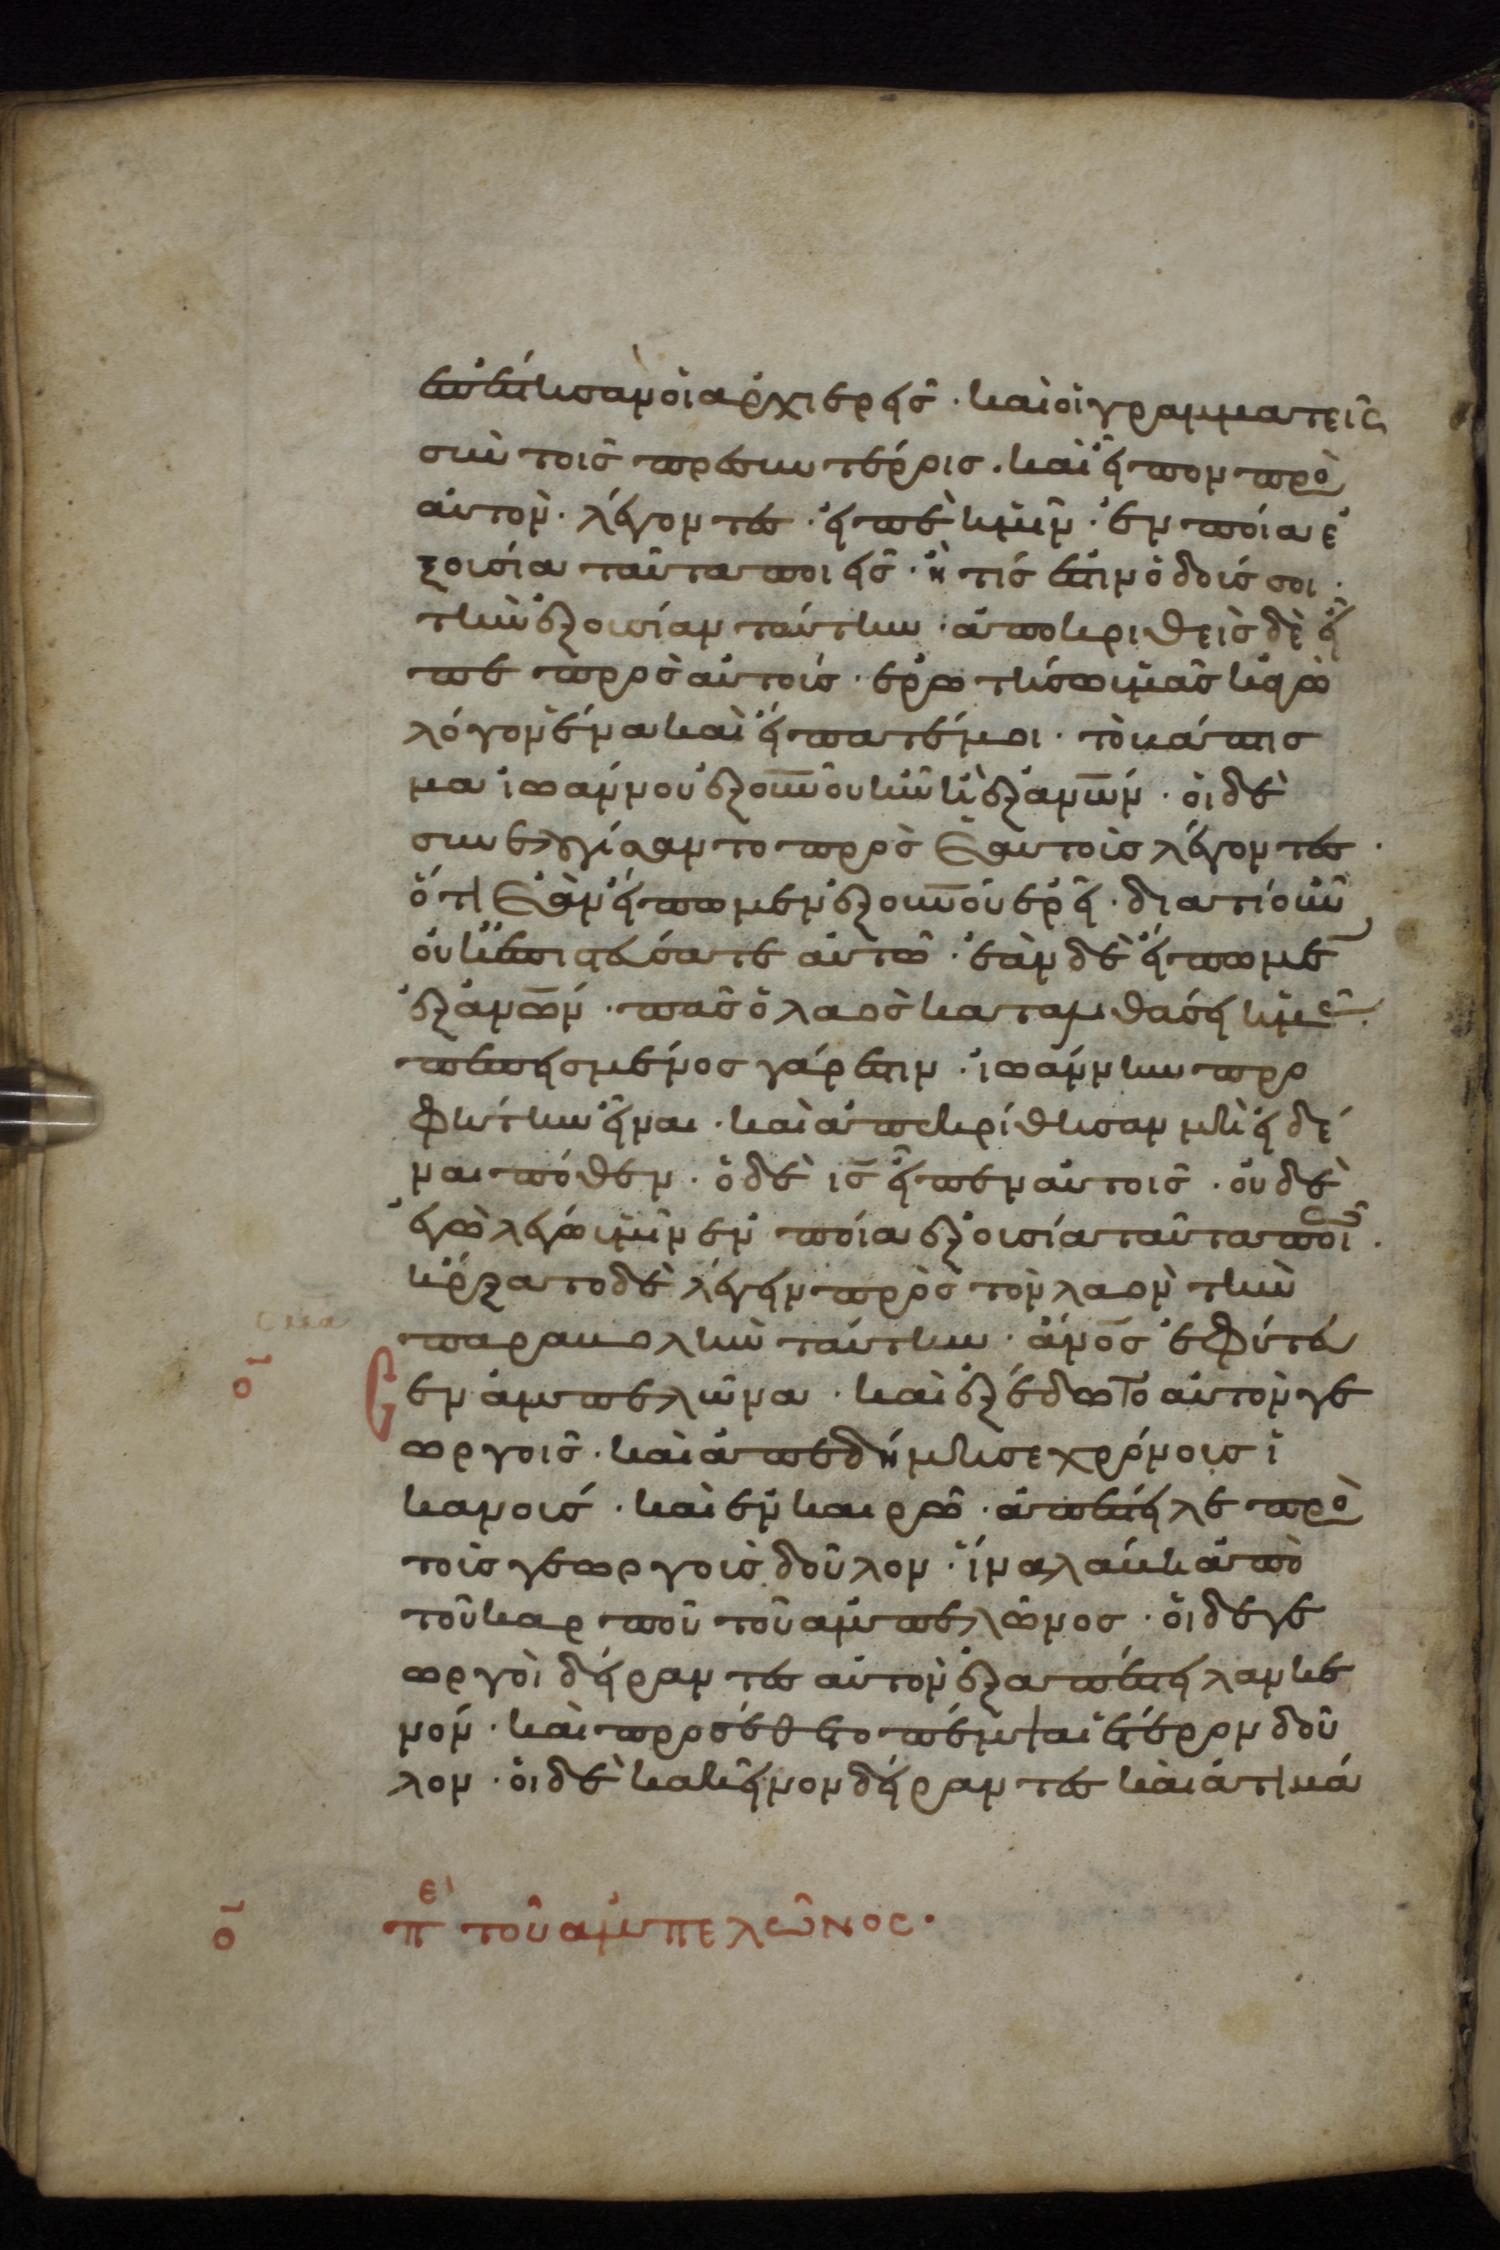 ἐπέστησαν οἱ ἀρχιερεῖς · καὶ οἱ γραμματεῖς
σὺν τοῖς πρεσβυτέροις · καὶ εἶπον προ
αὐτὸν · λέγοντες · εἰπὲ ἡμῖν · ἐν ποία ἐ
ξουσία ταῦτα ποιεῖς · ἢ τίς ἐστιν ὁ δούς σοι ·
τὴν ἐξουσίαν ταύτην · ἀποκριθεὶς δὲ εἶ
πε πρὸς αὐτούς · ἐρωτήσω ὑμᾶς κἀγὼ
λόγον ἕνα καὶ εἴπατέ μοι · τὸ βάπτισ
μα ἰωάννου ἐξ οὐνοῦ ἦν ἢ ἐξ ἀνων · οἱ δὲ
συνελογίσαντο πρὸς ἑαυτοὺς λέγοντες ·
ὅτι ἐὰν εἴπωμεν ἐξ οὐνοῦ ἐρεῖ · διατί οὖν
οὐκ ἐπιστεύσατε αὐτῶ · ἐὰν δὲ εἴπωμε
ἐξ ἀνων · πᾶς ὁ λαὸς καταλιθάσει ἡμᾶς ·
πεπεισμένος γάρ ἐστιν · ἰωάννην προ
φήτην εἶναι · καὶ ἀπεκρίθησαν μὴ εἰδέ
ναι πόθεν · ὁ δὲ ις εἶπεν αὐτοῖς · οὐδὲ
ἐγὼ λέγω ὑμῖν ἐν ποία ἐξουσία ταῦτα ποιῶ ·
ἤρξατο δὲ λέγειν πρὸς τὸν λαὸν τὴν
παραβολὴν ταύτην · ἄνος ἐφύτευ
σεν ἀμπελῶνα · καὶ ἐξέδωτο αὐτὸν γε
ωργοῖς · καὶ ἀπεδήμησε χρόνους ἱ
κανούς · καὶ ἐν καιρῶ · ἀπέστειλε προ
τοὺς γεωργοὺς δοῦλον · ἵνα λάβη ἀπὸ
τοῦ καρποῦ τοῦ ἀμπελῶνος · οἱ δὲ γε
ωργοὶ δείραντες αὐτὸν ἐξαπέστειλαν κε
νόν · καὶ προσέθετο πέμψαι ἕτερον δοῦ
λον · οἱ δὲ κακεῖνον δείραντες καὶ ἀτιμά
οι
οι
ε π τοῦ ἀμπελῶνος ·